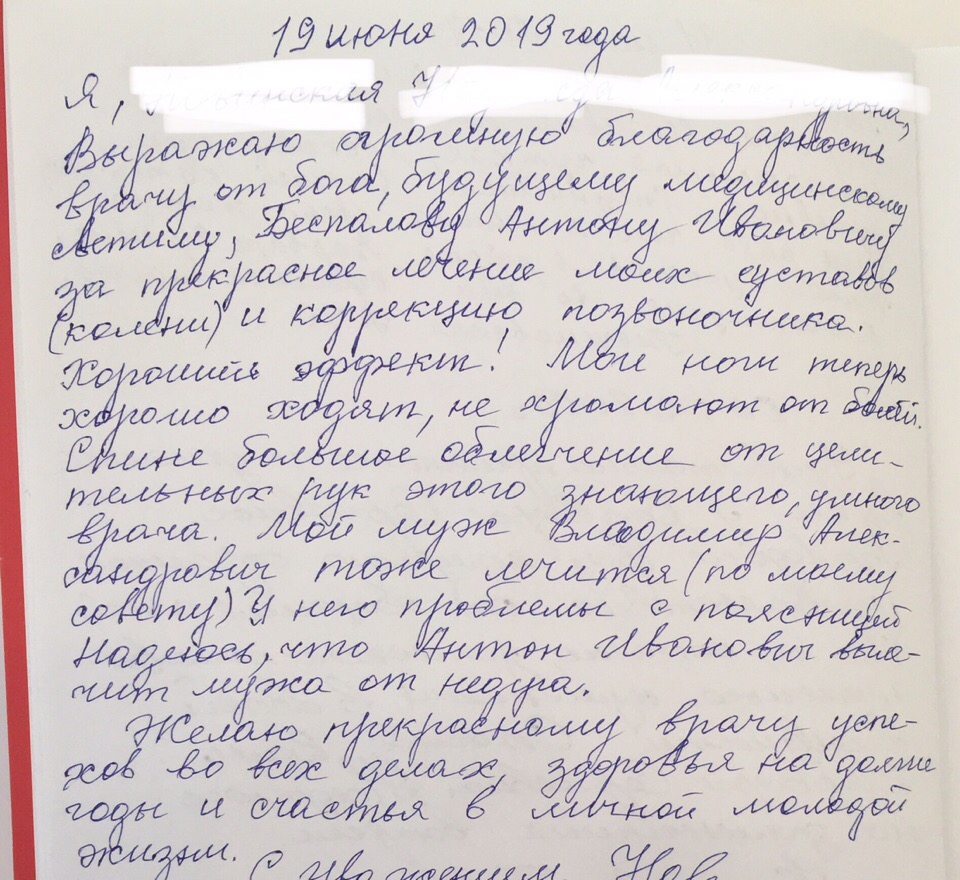 19 июня 2019 года
Я,
Выражаю огромную благодарность
врачу от бога, будущему медицинскому
светилу, Беспалову Антону Ивановичу
за прекрасное лечение моих суставов
(колени) и коррекцию позвоночника.
Хороший эффект! Мои ноги теперь
хорошо ходят, не хромают от болей.
Спине большое облегчение от цели-
тельных рук этого знающего, умного
врача. Мой муж Владимир Алек-
сандрович тоже лечится (по моему
совету) У него проблемы с поясницей
Надеюсь, что Антон Иванович выле-
чит мужа от недуга.
Желаю прекрасному врачу успе-
хов во всех делах, здоровья на долгие
годы и счастья в личной молодой
жизни.
С уважением,